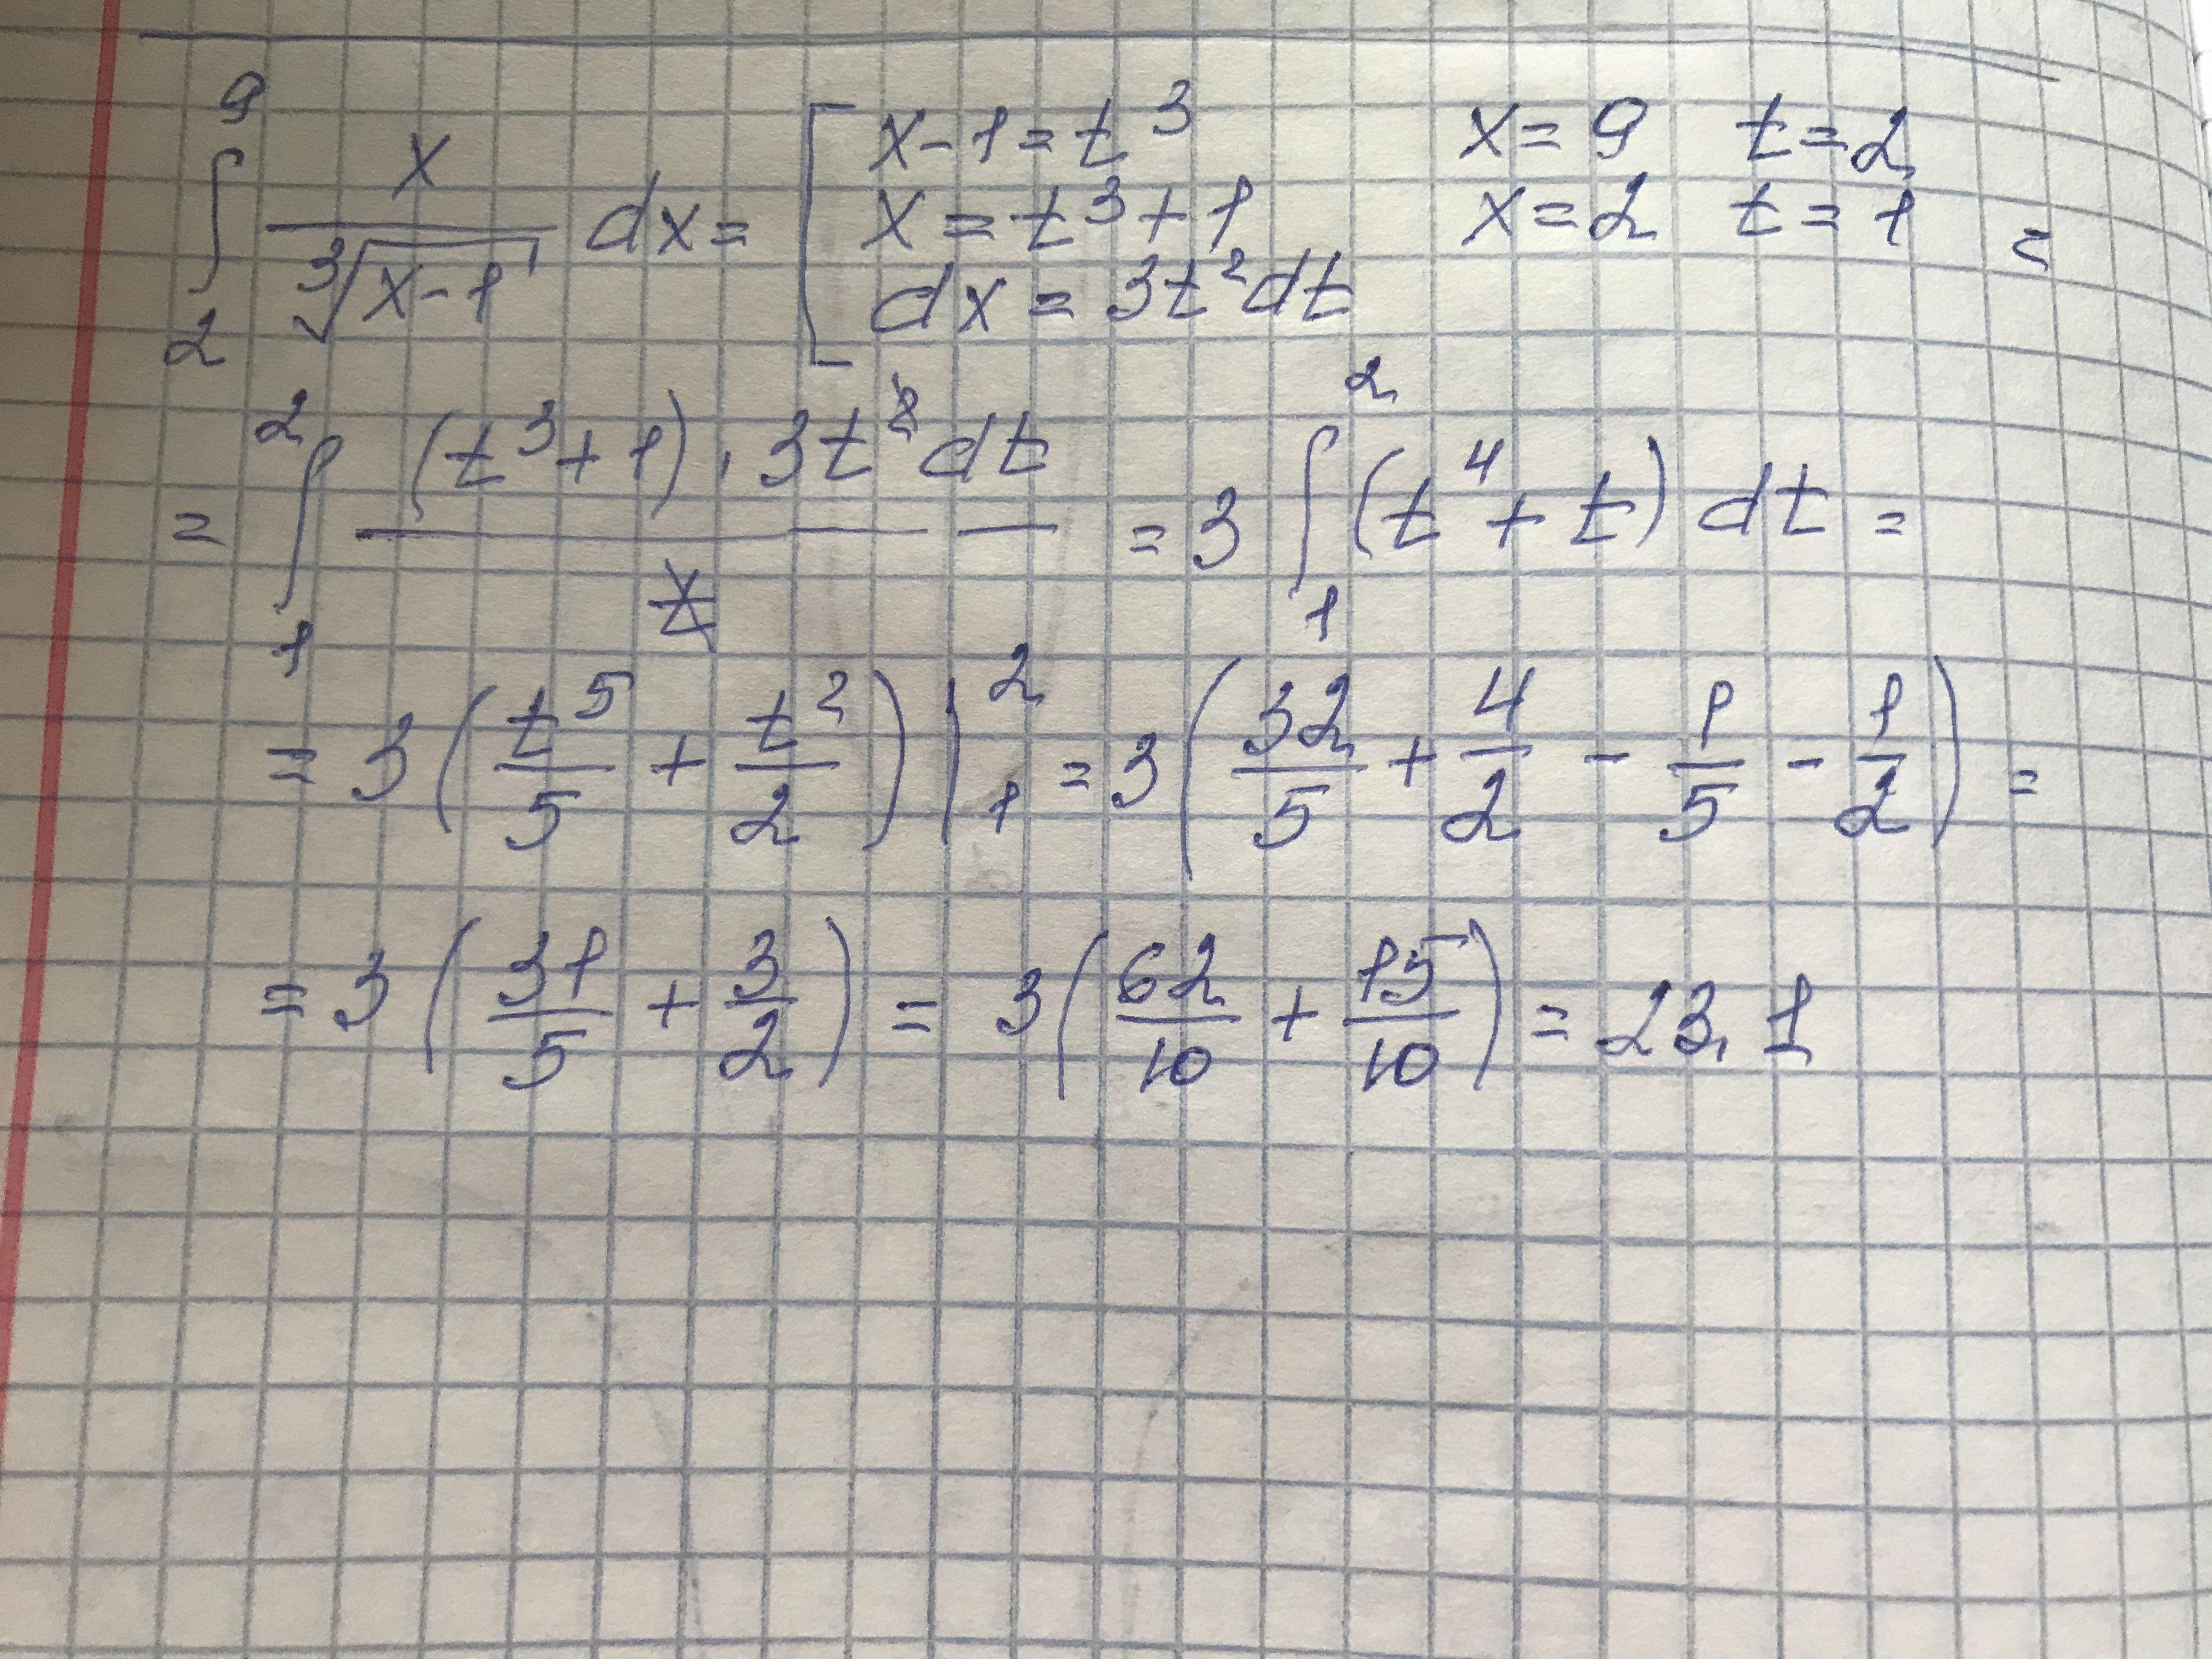 ∫₂⁹ x/∛(x-1) dx = [ x-1 = t³   x = 9   t = 2
x = t³ + 1   x = 2   t = 1   =
dx = 3t² dt
= ∫₁² (t³+1) · 3t² dt / t = 3 ∫₁² (t⁴ + t) dt =
= 3 (t⁵/5 + t²/2) |₁² = 3 (32/5 + 4/2 - 1/5 - 1/2) =
= 3 (31/5 + 3/2) = 3 (62/10 + 15/10) = 23,1